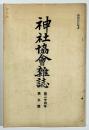 神社協會雜誌
第二十四年
第五號